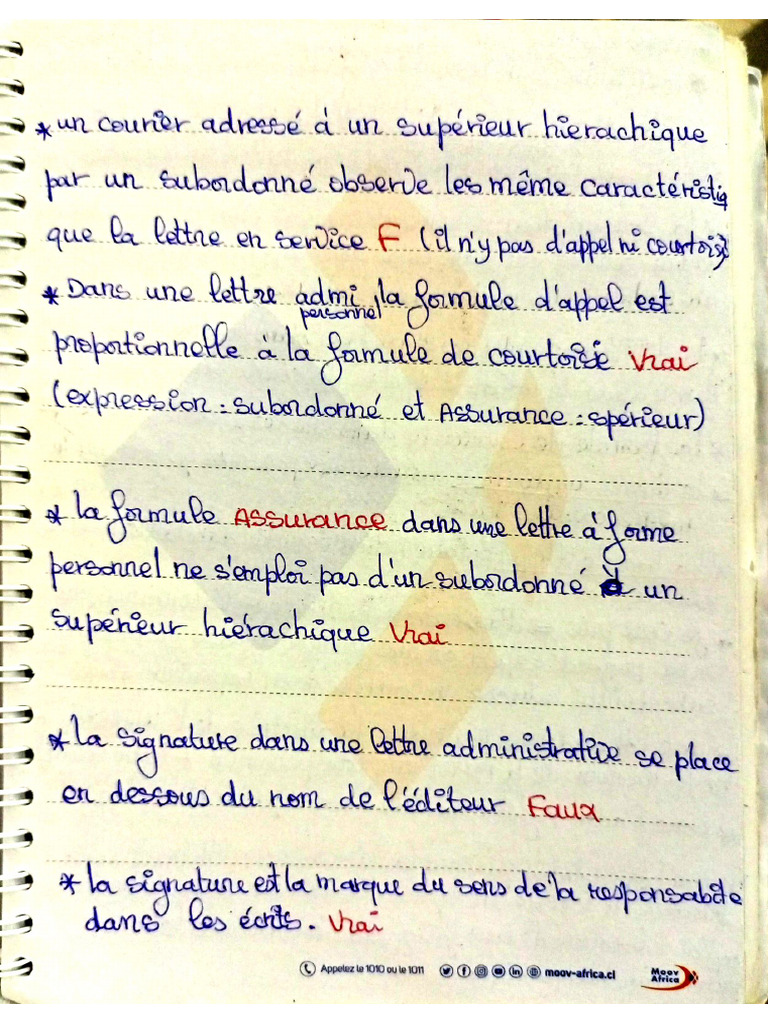 * un courier adressé à un supérieur hierachique
par un subordonné observe les même caractéristiq
que la lettre en service F (il n'y pas d'appel ni courtois)
* Dans une lettre admi personnel, la formule d'appel est
proportionnelle à la formule de courtoisie Vrai
(expression : subordonné et Assurance : spérieur)
* la formule Assurance dans une lettre à forme
personnel ne s'emploi pas d'un subordonné à un
supérieur hiérachique Vrai
* la signature dans une lettre administrative se place
en dessous du nom de l'éditeur Faux
* la signature est la marque du sens de la responsabite
dans les écrits. Vrai
Appelez le 1010 ou le 1011 moov-africa.ci Moov Africa